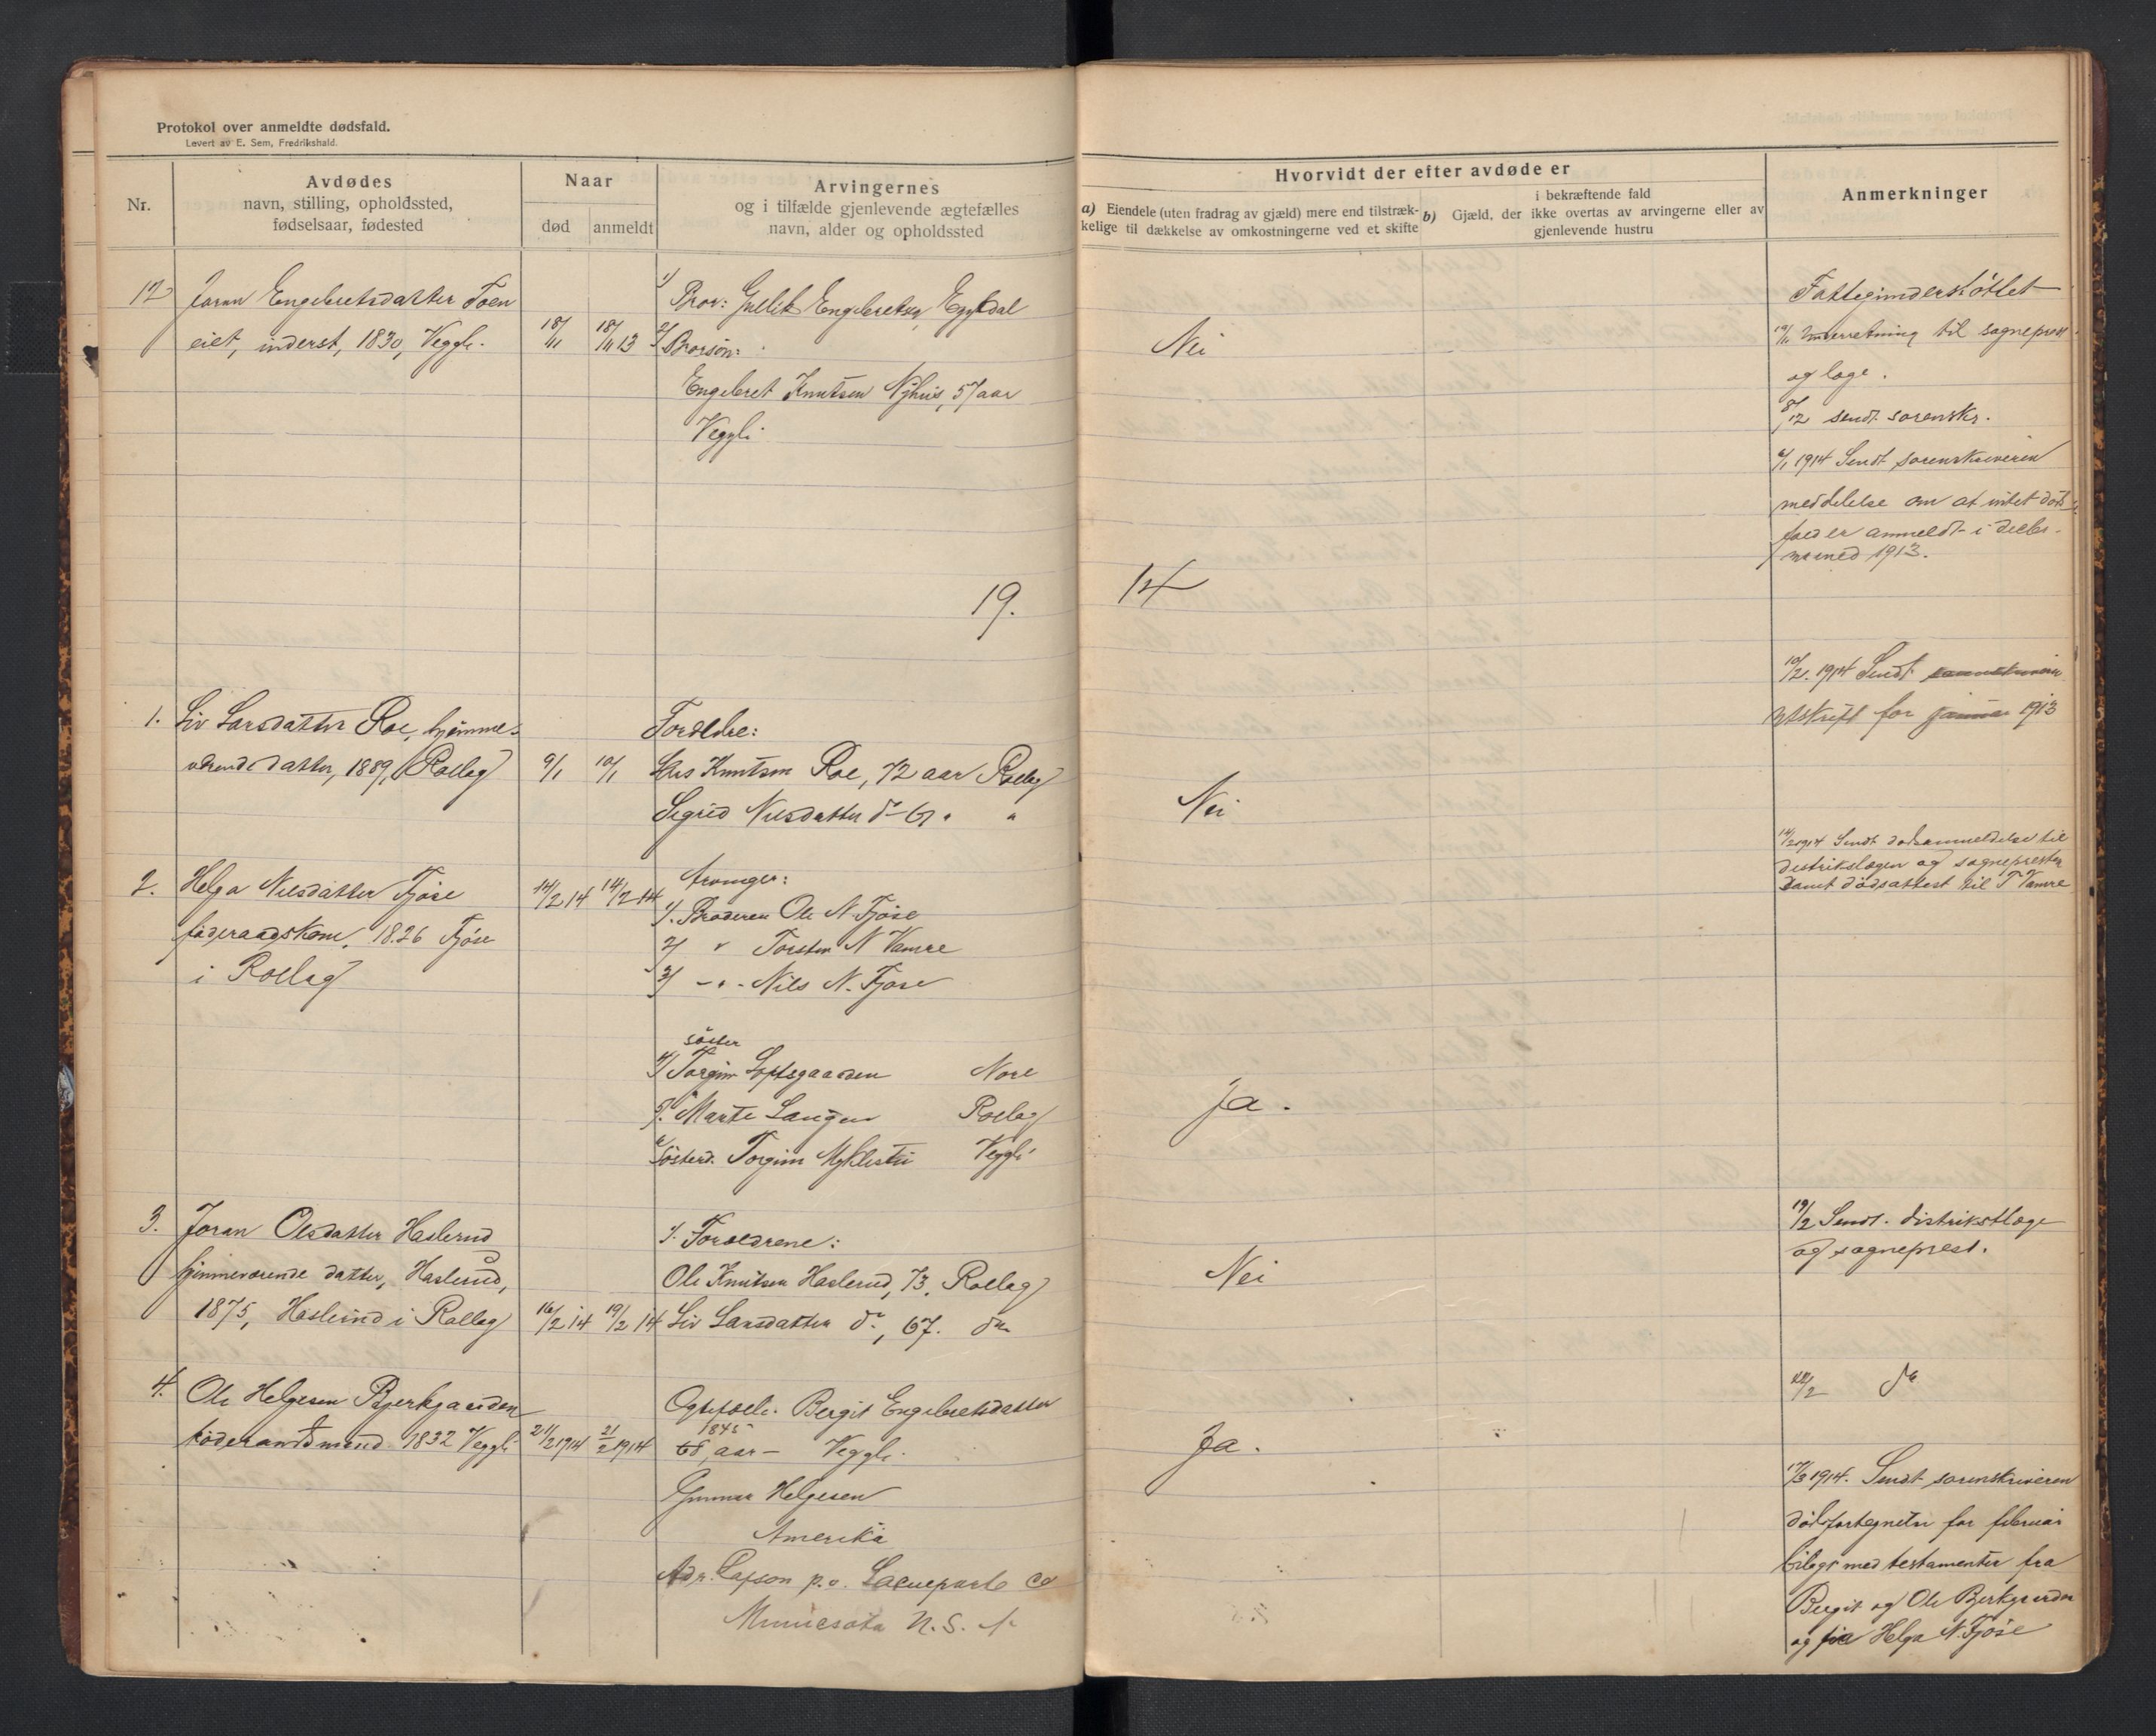 Protokol over anmeldte dødsfald.
Levert av E. Sem, Fredrikshald.
Nr.
Avdødes
navn, stilling, opholdssted,
fødselsaar, fødested
Naar
død
anmeldt
Arvingernes
og i tilfælde gjenlevende ægtefælles
navn, alder og opholdssted
Hvorvidt der efter avdøde er
a) Eiendele (uten fradrag av gjæld) mere end tilstræk-
kelige til dækkelse av omkostningerne ved et skifte
i bekræftende fald
b) Gjæld, der ikke overtas av arvingerne eller av
gjenlevende hustru
Anmerkninger
12 Joran Engebretsdatter Toen
eiet, inderst, 1830, Veggli.
18/11
18/11 13
1/ Bror: Gullik Engebretsen
2/ Brorsön:
Engebret Knutsen Nyhus, 57 aar
Veggli
Nei
Fattigunderstöttet
19/11 Underretning til sogneprest
og læge.
8/12 sendt sorenskr.
6/1 1914 Sendt sorenskriveren
meddelelse om at intet döds-
fald er anmeldt i decbr.
maaned 1913.
19.
14
1. Liv Larsdatter Roe, hjemme-
værende datter, 1889, Rollag
9/1
10/1
Foreldre:
Lars Knutsen Roe, 72 aar Rollag
Sigrid Nilsdatter do 67 " "
Nei
10/2. 1914 Sendt sorenskriveren
utskrift for januar 1913
2. Helga Nilsdatter Fjöse
föderaadskone, 1826 Fjöse
i Rollag
14/2 14
14/2 14
Arvinger:
1/. Broderen Ole N. Fjöse
2/ " Torsten N Vamre
3/ - " - Nils N. Fjöse
söster
4/ Torgun Loftsgaarden Nore
5/. Marte Laugen Rollag
6/ Sösterd. Torgun Myklestu Veggli
Ja.
14/2 1914 Sendt dødsanmeldelse til
distriktslægen og sognepresten
samt dödsattest til T Vamre
3. Joran Olsdatter Haslerud
hjemmeværende datter, Haslerud,
1875, Haslerud i Rollag
16/2 14
19/2 14
1/. Foreldrene:
Ole Knutsen Haslerud, 73, Rollag
Liv Larsdatter do, 67. do
Nei
19/2 Sendt distriktslæge
og sogneprest.
4. Ole Helgesen Bjerkgaarden
föderaadsmand 1832 Veggli
21/2 1914
21/2 1914
Egtefælle: Bergit Engebretsdatter
1845
68 aar - Veggli.
Gunnar Helgesen
Amerika
Adr. p.o. Co
Minnesota N. S. A
Ja.
22/2 do
17/3 1914. Sendt sorenskriveren
dödsfortegnelse for februar
bilagt med testamenter fra
Bergit og Ole Bjerkgaarden
og fra Helga N. Fjöse